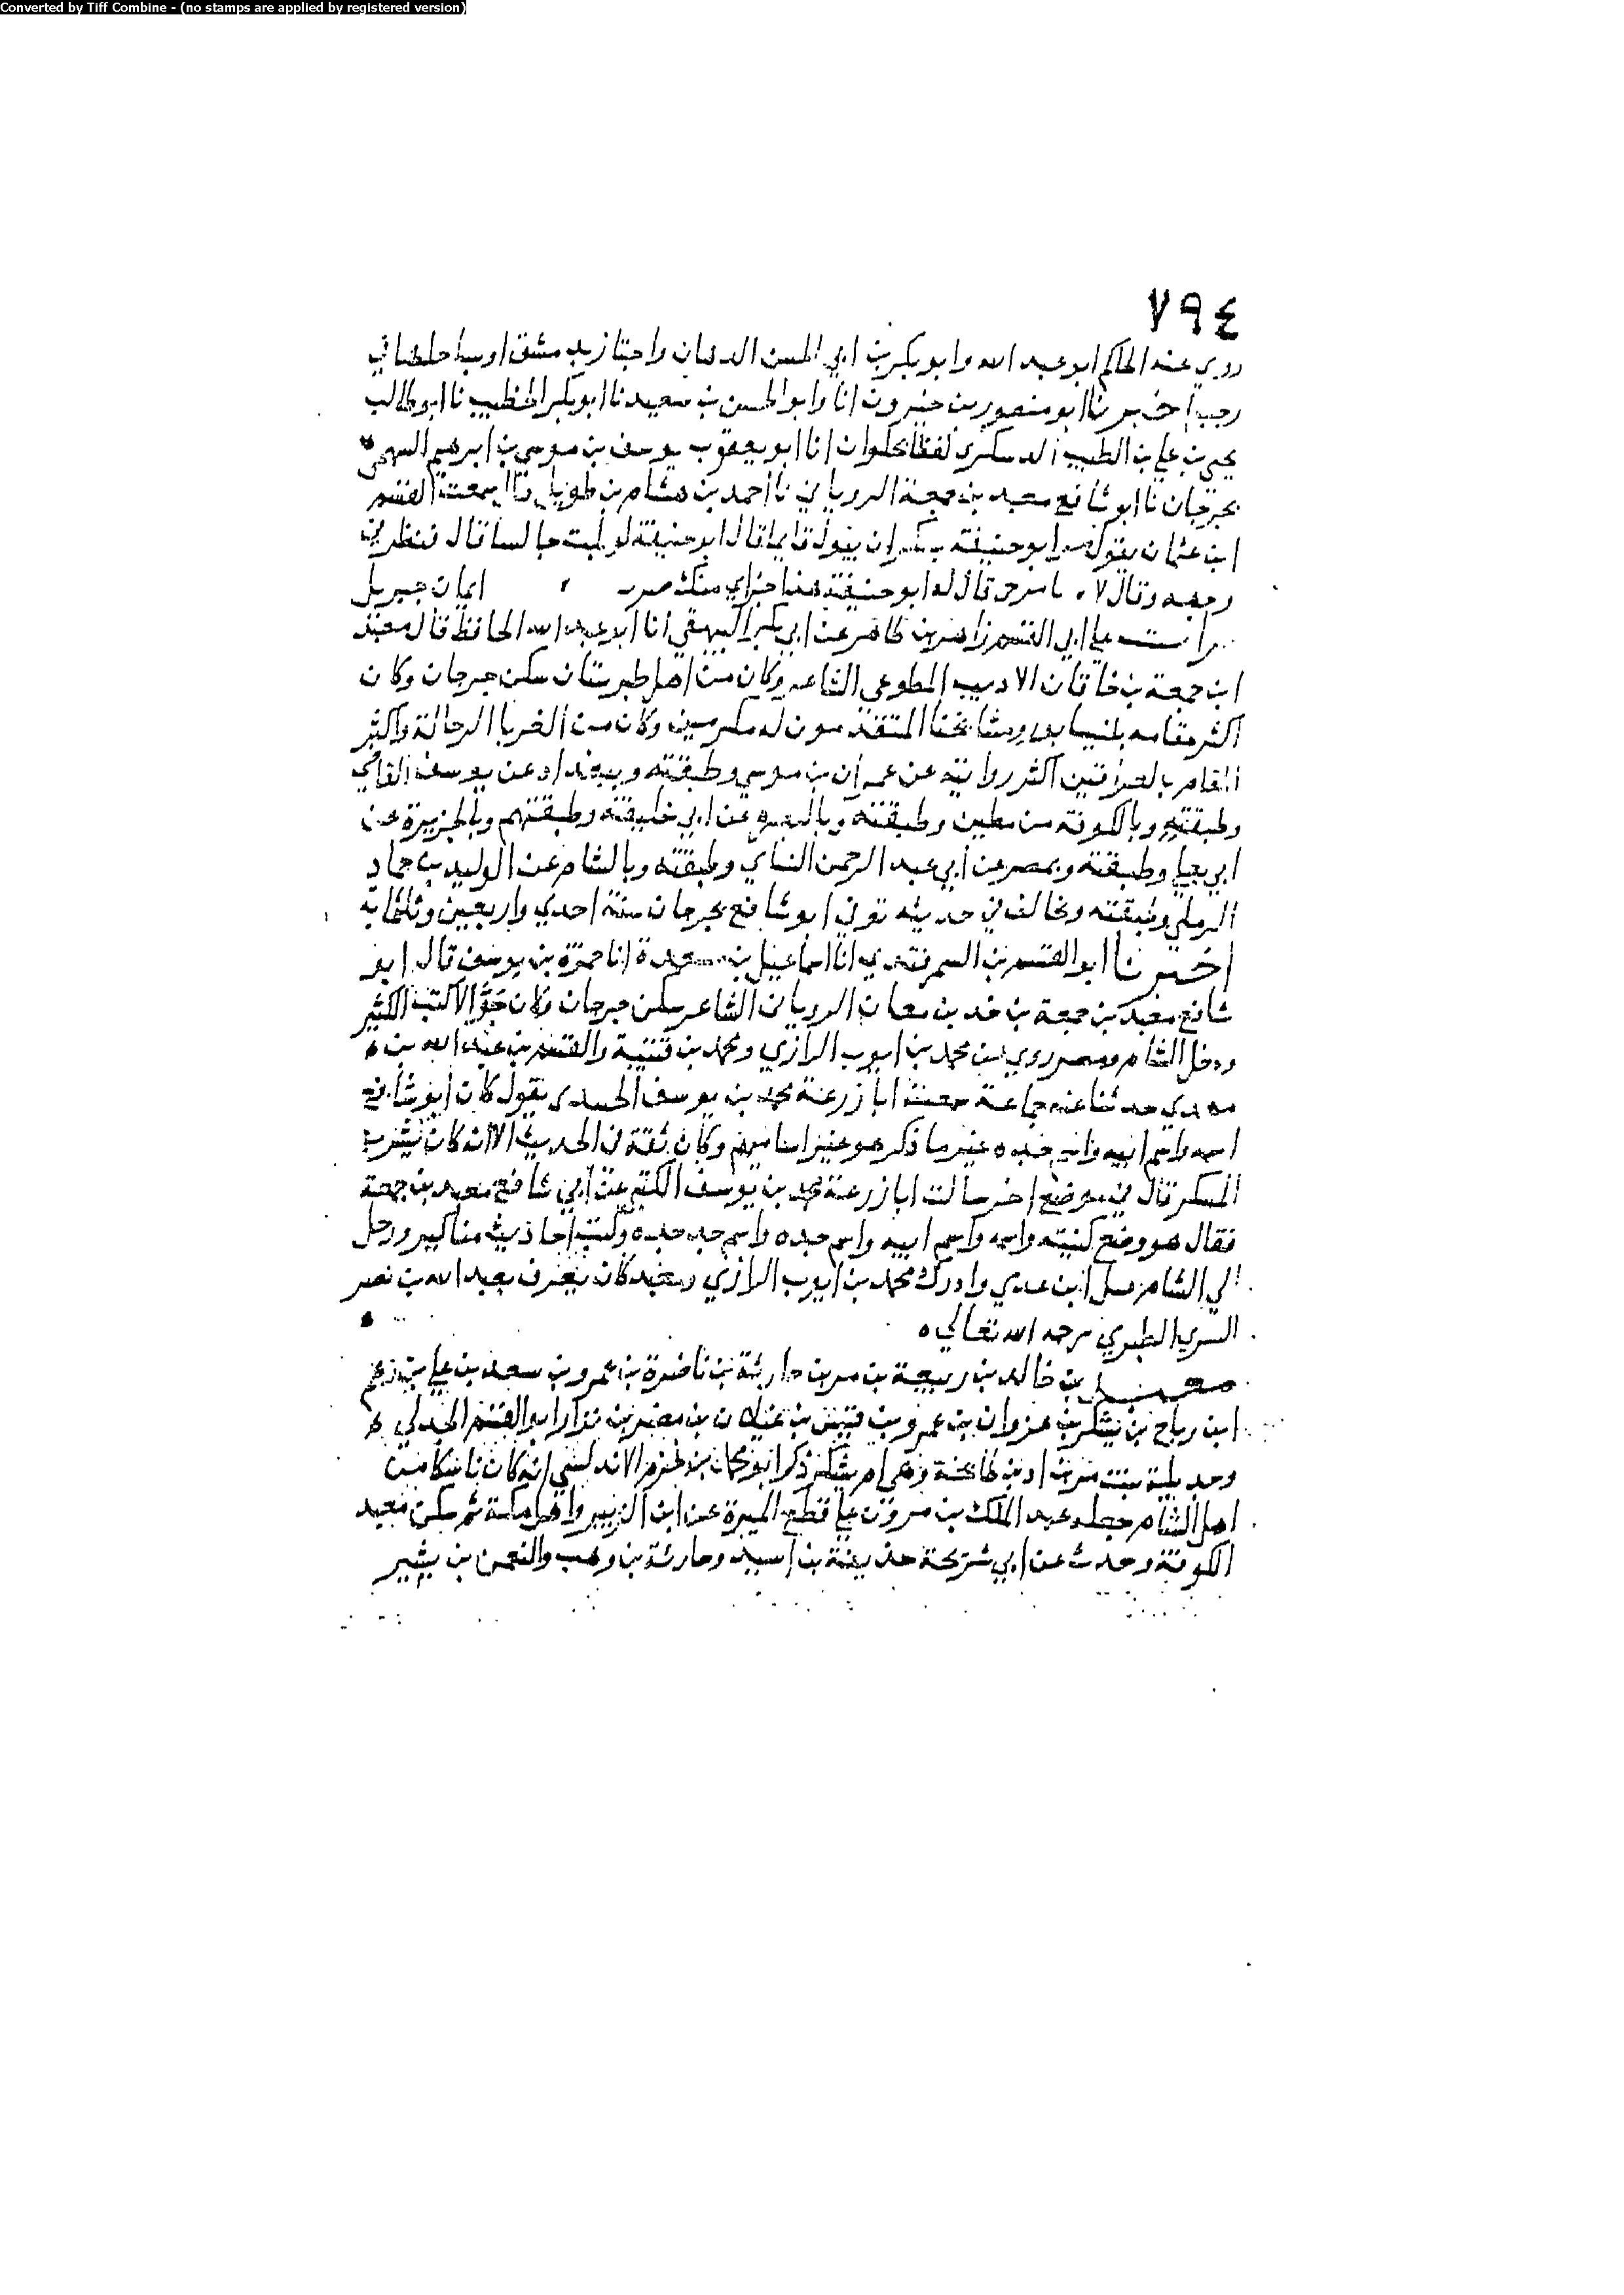 Converted by Tiff Combine - (no stamps are applied by registered version)
٧٩٤
روى عنه الحاكم ابو عبد الله وابو بكر بن ابي الحسن الدهان واجتاز بدمشق او بساحلها في
رجب اخبرنا ابو منصور بن خيرون انا وابو الحسن بن سعيد نا ابو بكر الخطيب نا ابو طالب
يحيى بن علي بن الطيب الدسكري لفظا بحلوان انا ابو يعقوب يوسف بن موسى بن ابرهيم السهمي
بجرجان نا ابو شافع معبد بن جمعة الروياني نا احمد بن هشام بن طويل قال سمعت القسم
ابن عثمان يقول مر ابو حنيفة بسكران يبول قائما قال ابو حنيفة لو بلت جالسا قال فنظر في
وجهه وقال لا يا مرجى قال له ابو حنيفة هذا جزاي منك صيرت ايمان جبريل
قرأت على ابي القسم زاهر بن طاهر عن ابي بكر البيهقي انا ابو عبد الله الحافظ قال معبد
ابن جمعة بن خاقان الاديب المطوعي الشاعر وكان من اهل طبرستان سكن جرجان وكان
اكثر مقامه بنيسابور ومشايخنا المتقدمون له مكرمين وكان من الغربا الرحالة واكثر
المقام بالعراقين اكثر روايته عن عمران بن موسى وطبقته وببغداد عن يوسف القاضي
وطبقته وبالكوفة من مطين وطبقته وبالبصره عن ابي خليفة وطبقتهم وبالجزيرة عن
ابي يعلى وطبقته وبمصر عن ابي عبد الرحمن النساي وطبقته وبالشام عن الوليد بن حماد
الرملي وطبقته وخالف في حديثه توفي ابو شافع بجرجان سنة احدى واربعين وثلثماية
اخبرنا ابو القسم بن السمرقندي انا اسماعيل بن مسعدة انا حمزة بن يوسف قال ابو
شافع معبد بن جمعة بن خد بن معان الروياني الشاعر سكن جرجان وكان جوالا كتب الكثير
ودخل الشام ومصر روى عن محمد بن ايوب الرازي ومحمد بن قتيبة والقسم بن عبد الله بن
مهدي حدثنا عنه جماعة سمعت ابا زرعة محمد بن يوسف الجنيدي يقول كان ابو شافع
اسمه واسم ابيه واسم جده غير ما ذكر هو غير اساميهم وكان ثقة في الحديث الا انه كان يشرب
المسكر قال في موضع اخر سالت ابا زرعة محمد بن يوسف الكشي عن ابي شافع معبد بن جمعة
فقال هو وضع كنيته واسمه واسم ابيه واسم جده واسم جد جده وكتب احاديث مناكير ورحل
الى الشام قبل ابن عدي وادرك محمد بن ايوب الرازي ومعبد كان يعرف بعبد الله بن نصر
السري الطبري رحمه الله تعالى
معبد بن خالد بن ربيعة بن مرين حارثة بن ناضرة بن عمرو بن سعد بن علي بن رهم
ابن رباح بن يشكر بن عدوان بن عمرو بن قيس بن عيلان بن مضر بن نزار ابو القسم الجدلي
وجديلة بنت مر بن اد بن طابخة وهي ام يشكر ذكر ابو محمد بن حزم الاندلسي انه كان ناسكا من
اهل الشام جعله عبد الملك بن مروان على قطع الميرة عن ابن الزبير واهل مكة ثم سكن معبد
الكوفة وحدث عن ابي سريحة حذيفة بن اسيد وحارثة بن وهب والنعمن بن بشير